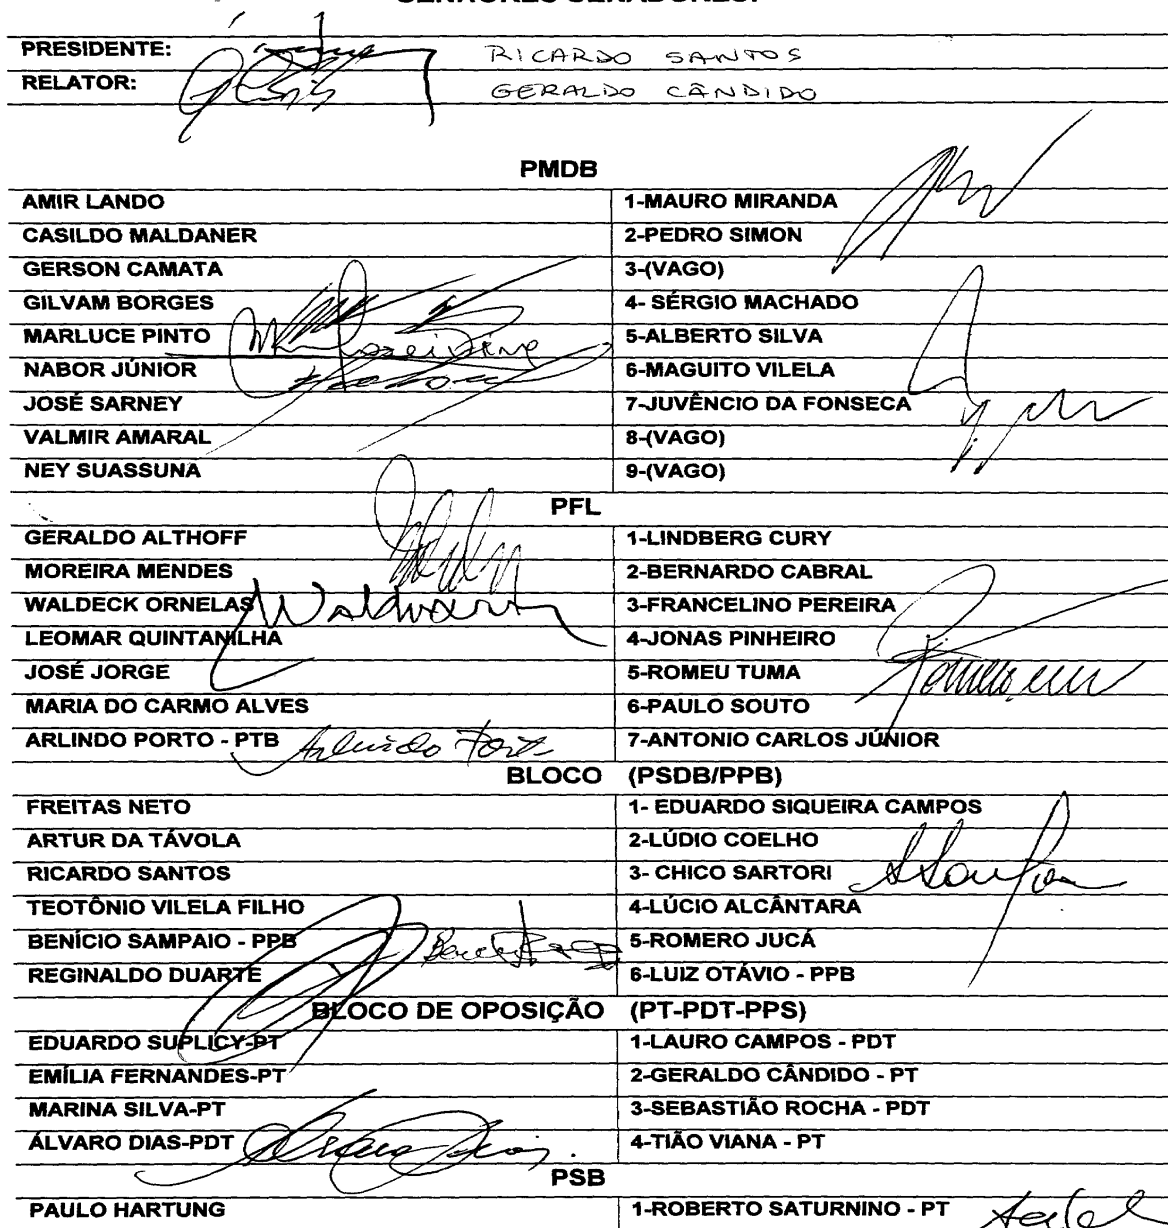 SENHORES SENADORES:
PRESIDENTE: RICARDO SANTOS
RELATOR: GERALDO CÂNDIDO
PMDB
AMIR LANDO 1-MAURO MIRANDA
CASILDO MALDANER 2-PEDRO SIMON
GERSON CAMATA 3-(VAGO)
GILVAM BORGES 4- SÉRGIO MACHADO
MARLUCE PINTO 5-ALBERTO SILVA
NABOR JÚNIOR 6-MAGUITO VILELA
JOSÉ SARNEY 7-JUVÊNCIO DA FONSECA
VALMIR AMARAL 8-(VAGO)
NEY SUASSUNA 9-(VAGO)
PFL
GERALDO ALTHOFF 1-LINDBERG CURY
MOREIRA MENDES 2-BERNARDO CABRAL
WALDECK ORNELAS 3-FRANCELINO PEREIRA
LEOMAR QUINTANILHA 4-JONAS PINHEIRO
JOSÉ JORGE 5-ROMEU TUMA
MARIA DO CARMO ALVES 6-PAULO SOUTO
ARLINDO PORTO - PTB Arlindo Porto 7-ANTONIO CARLOS JÚNIOR
BLOCO (PSDB/PPB)
FREITAS NETO 1- EDUARDO SIQUEIRA CAMPOS
ARTUR DA TÁVOLA 2-LÚDIO COELHO
RICARDO SANTOS 3- CHICO SARTORI
TEOTÔNIO VILELA FILHO 4-LÚCIO ALCÂNTARA
BENÍCIO SAMPAIO - PPB 5-ROMERO JUCÁ
REGINALDO DUARTE 6-LUIZ OTÁVIO - PPB
BLOCO DE OPOSIÇÃO (PT-PDT-PPS)
EDUARDO SUPLICY-PT 1-LAURO CAMPOS - PDT
EMÍLIA FERNANDES-PT 2-GERALDO CÂNDIDO - PT
MARINA SILVA-PT 3-SEBASTIÃO ROCHA - PDT
ÁLVARO DIAS-PDT 4-TIÃO VIANA - PT
PSB
PAULO HARTUNG 1-ROBERTO SATURNINO - PT